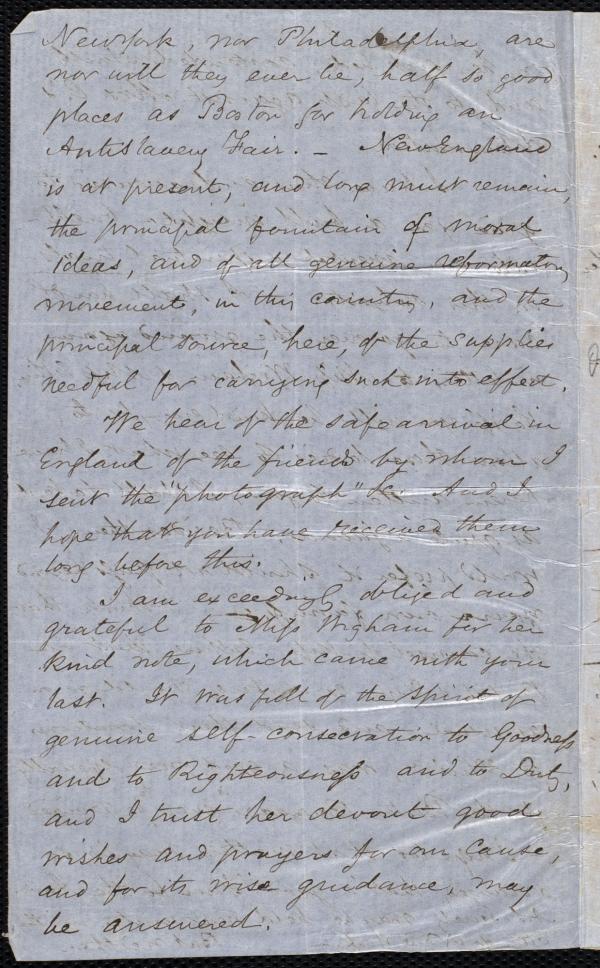 New York, nor Philadelphia, are
nor will they ever be, half so good
places as Boston for holding an
Antislavery Fair. – New England
is at present, and long must remain,
the principal fountain of moral
ideas, and of all genuine reformatory
movement, in this country, and the
principal source, here, of the supplies
needful for carrying such into effect.
We hear of the safe arrival in
England of the friends by whom I
sent the "photograph" &c. And I
hope that you have received them
long before this.
I am exceedingly obliged and
grateful to Miss Wigham for her
kind note, which came with your
last. It was full of the spirit of
genuine self-consecration to Goodness
and to Righteousness and to Duty,
and I trust her devout good
wishes and prayers for our Cause,
and for its wise guidance, may
be answered.